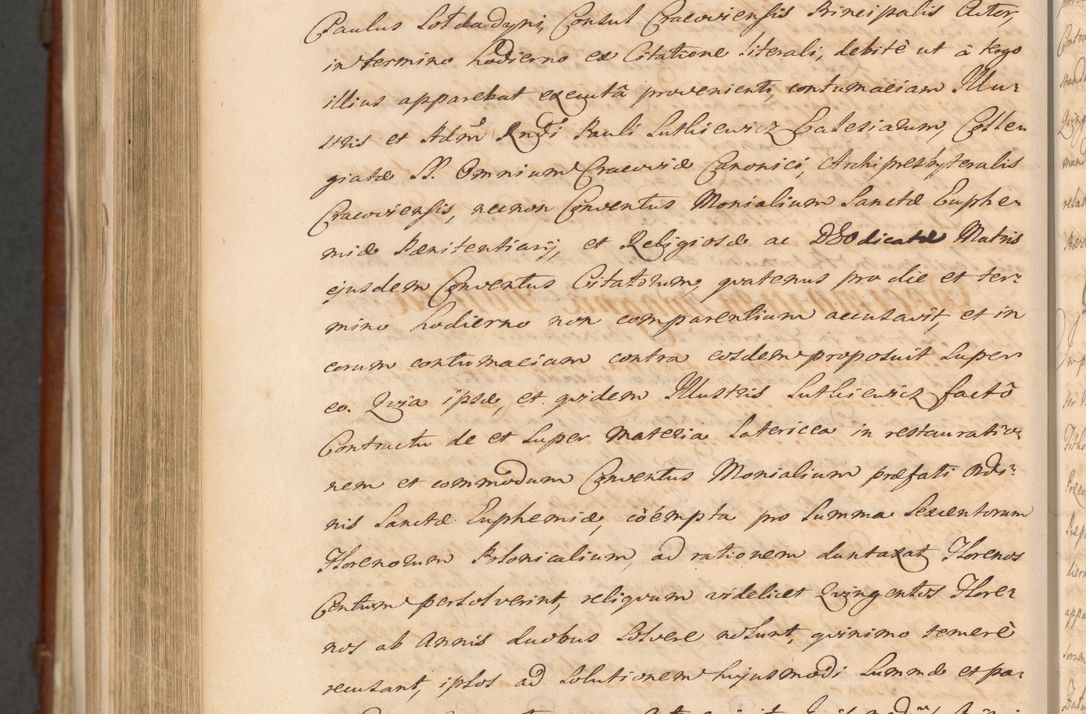 Paulus Soldadyni, Consul Cracoviensis Principalis Actor,
in termino hodierno ex Citatione literali, debitè ut à tergo
illius apparebat executâ proveniente, contumaciam Illu-
stris et Adm Rndi Pauli Sutkiewicz Ecclesiarum, Colle-
giatæ SS. Omnium Cracoviæ Canonici, Archipresbyteralis
Cracoviensis, necnon Conventus Monialium Sanctæ Euphe-
miæ Pænitentiarij, et Religiosæ ac Matris
ejusdem Conventus Citatorum, quatenus pro die et ter-
mino hodierno non comparentium accusavit, et in
eorum contumaciam contra eosdem proposuit super
eo. Quia ipsæ, et quidem Illustris Sutkiewicz factô
Contractu de et super Materia Latericea in restauratio-
nem et commodum Conventus Monialium præfati Ordi-
nis Sanctæ Euphemiæ, coëmpta pro Summa Sexcentorum
Florenorum Polonicalium, ad rationem duntaxat Florenos
Centum persolverint, reliquum videlicet Quingentos Flore-
nos ab Annis duobus solvere nolunt, quinimo temerè
recusant, ipsos ad solutionem hujusmodi Summæ et pa-